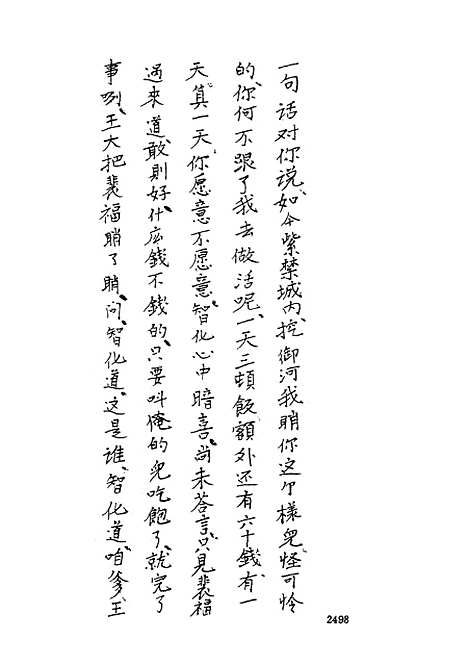 一句话对你说、如今紫禁城内、挖御河我睄你这个樣兒怪可怜
的、你何不跟了我去做活呢、一天三頓飯額外还有六十錢、有一
天、算一天、你愿意不愿意、智化心中暗喜、尚未荅言、只見裴福
过來道、敢則好、什広錢不錢的、只要呌俺的兒吃飽了、就完了
事咧、王大把裴福睄了睄、问、智化道、这是谁、智化道、咱爹、王
2498